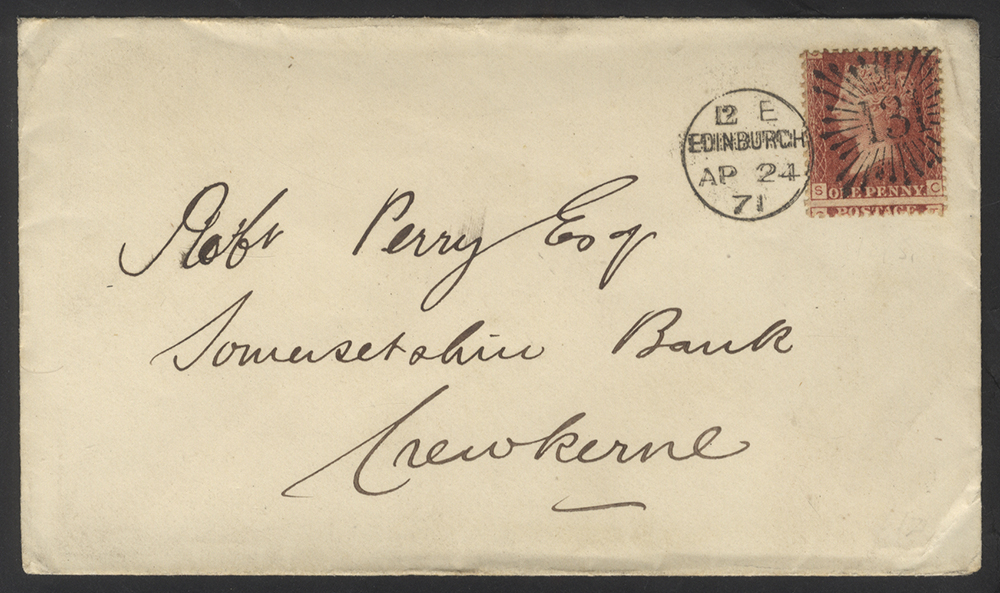 12 E
EDINBURGH
AP 24
71
131
S ONE PENNY C
POSTAGE
Robt Perry Esq
Somersetshire Bank
Crewkerne